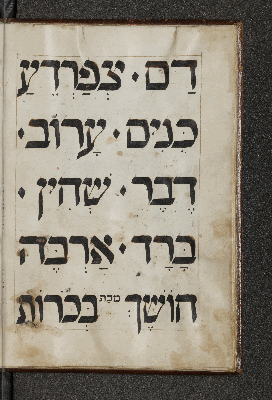 דָם · צְפַרְדֵעַ
כִנִים · עָרוֹב ·
דֶבֶר · שְׁחִין ·
בָרָד · אַרְבֶה
חוֹשֶךְ מכת בְכוֹרוֹת